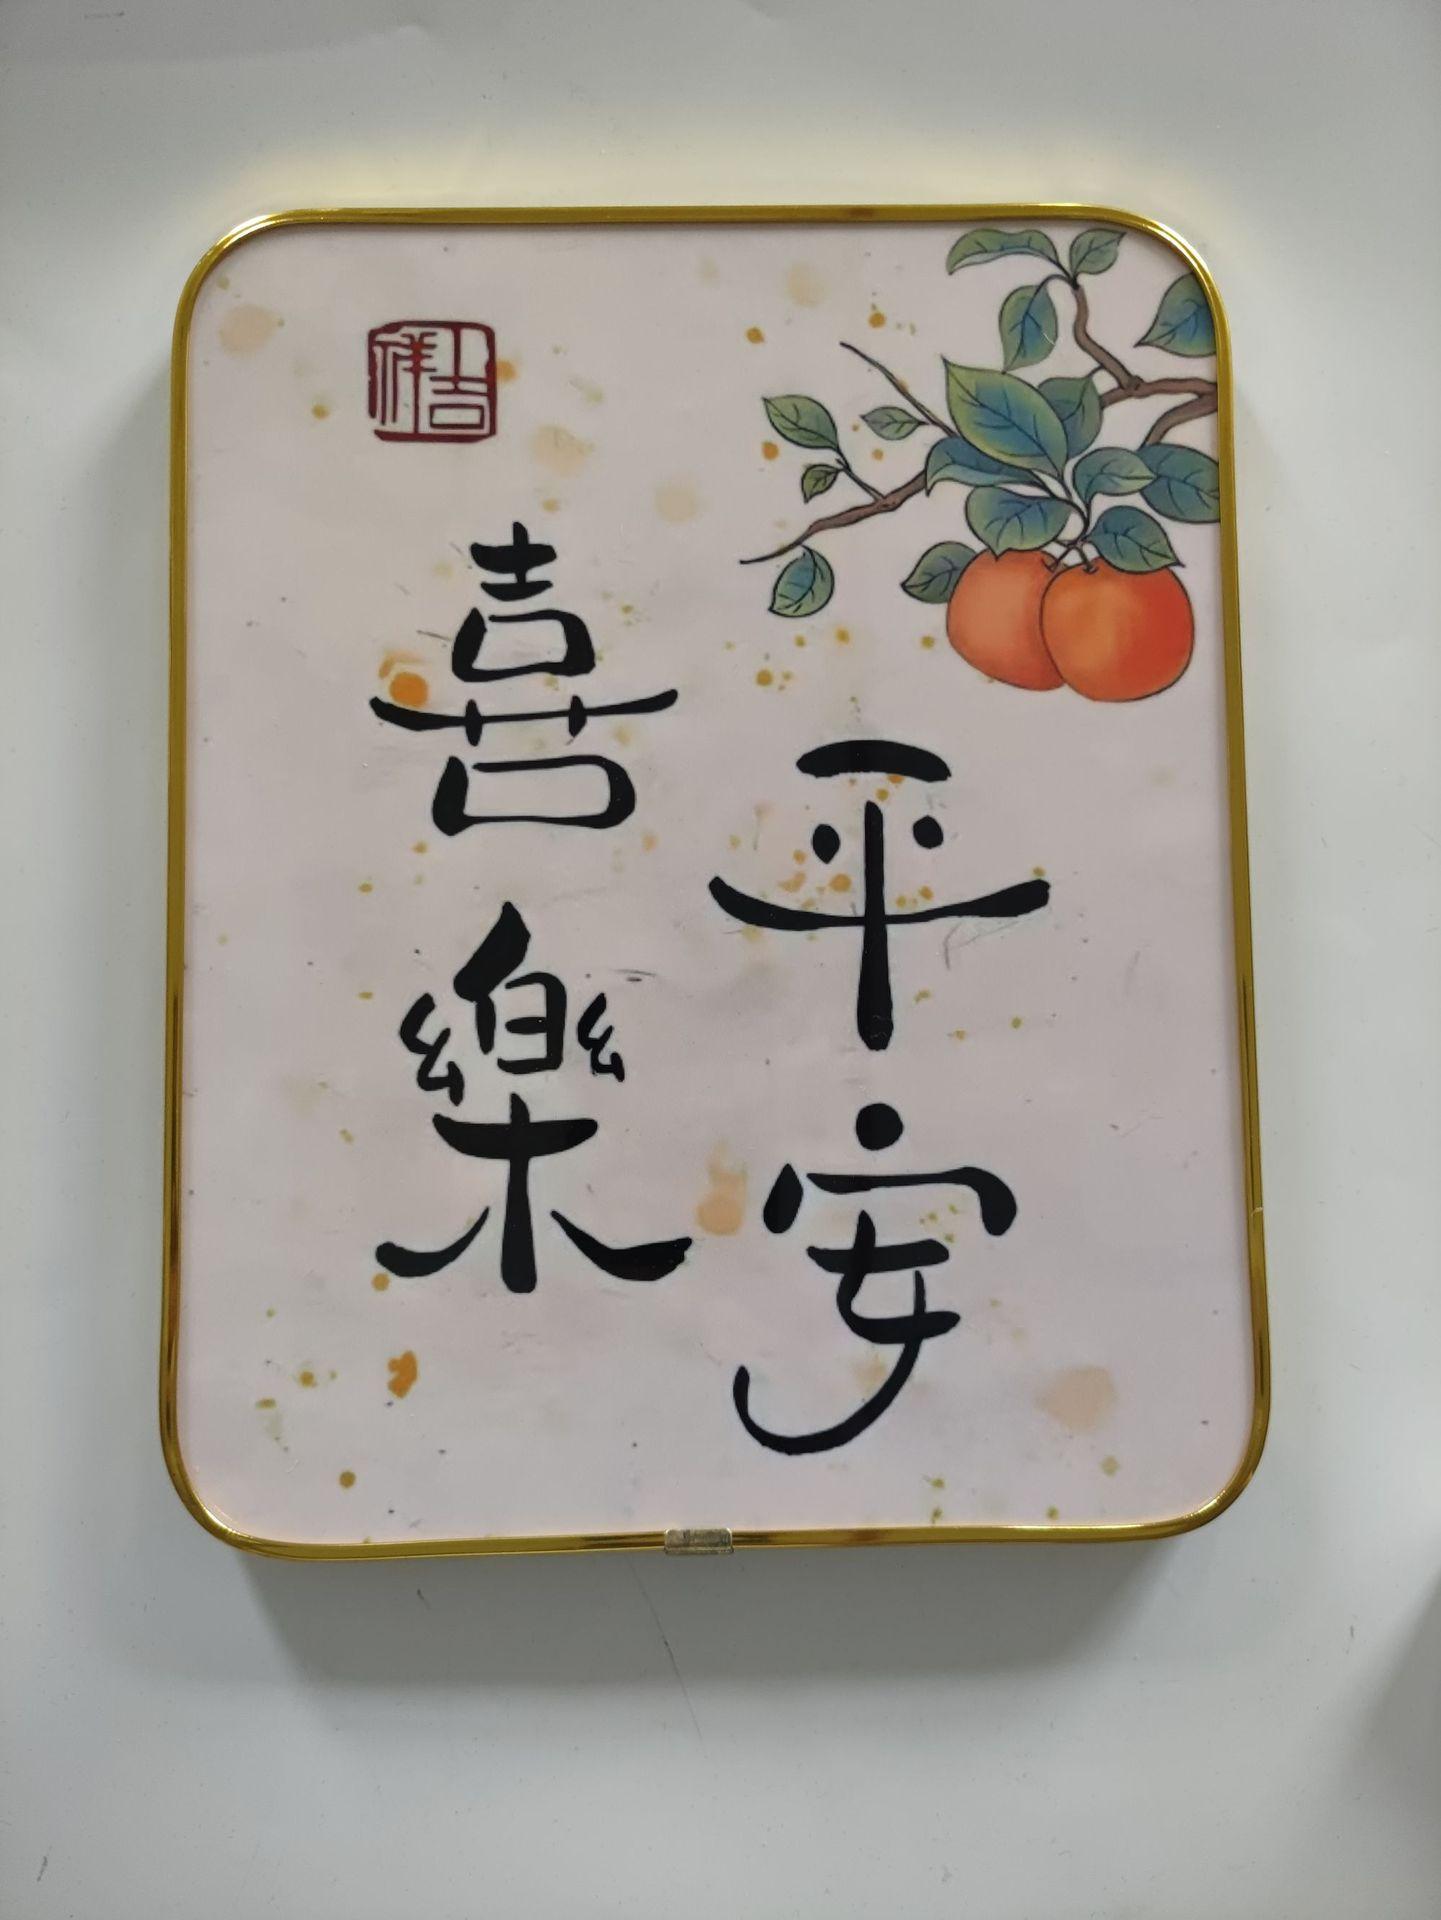 平安
喜樂
吉祥